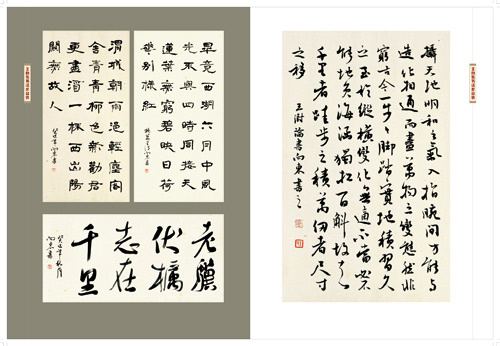 攝天地明和之氣入指腕間方能與
造化相通而盡萬物之變態然非
窮古今一步一腳踏實地積習久
之至於縱橫變化無適不當必不
能地負海涵獨扛百斛故
千里者跬步之積萬仞者尺寸
之移
王澍論書向東書之
畢竟西湖六月中風
光不與四時同接天
蓮葉無窮碧映日荷
花別樣紅
渭城朝雨浥輕塵客
舍青青柳色新勸君
更盡酒一杯西出陽
關無故人
老驥
伏櫪
志在
千里
向東書